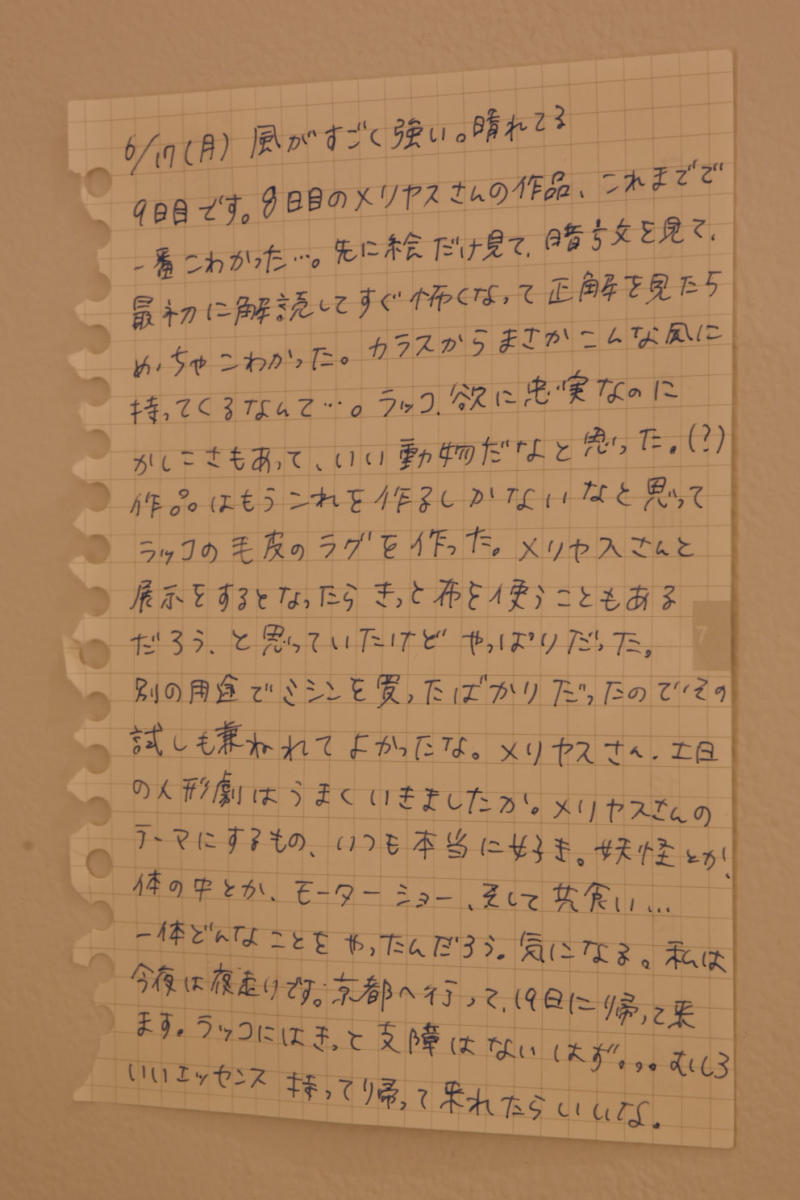 6/17(月) 風がすごく強い。晴れてる
9日目です。8日目のメリヤスさんの作品、これまでで
一番こわかった…。先に絵だけ見て、暗号文を見て、
最初に解読してすぐ怖くなって正解を見たら
めっちゃこわかった。カラスからまさかこんな風に
持ってくるなんて…。ラッコ、欲に忠実なのに
かしこさもあって、いい動物だなと思った。(?)
作品はもうこれを作るしかないなと思って
ラッコの毛皮のラグを作った。メリヤスさんと
展示をするとなったらきっと布を使うこともある
だろう、と思っていたけどやっぱりだった。
別の用途でミシンを買ったばかりだったのでその
試しも兼ねれてよかったな。メリヤスさん、土日
の人形劇はうまくいきましたか。メリヤスさんの
テーマにするもの、いつも本当に好き。妖怪とか、
体の中とか、モーターショー、そして共食い…
一体どんなことをやったんだろう。気になる。私は
今夜は夜走りです。京都へ行って、19日に帰って来
ます。ラッコにはきっと支障はないはず。。。むしろ
いいエッセンス持って帰って来れたらいいな。